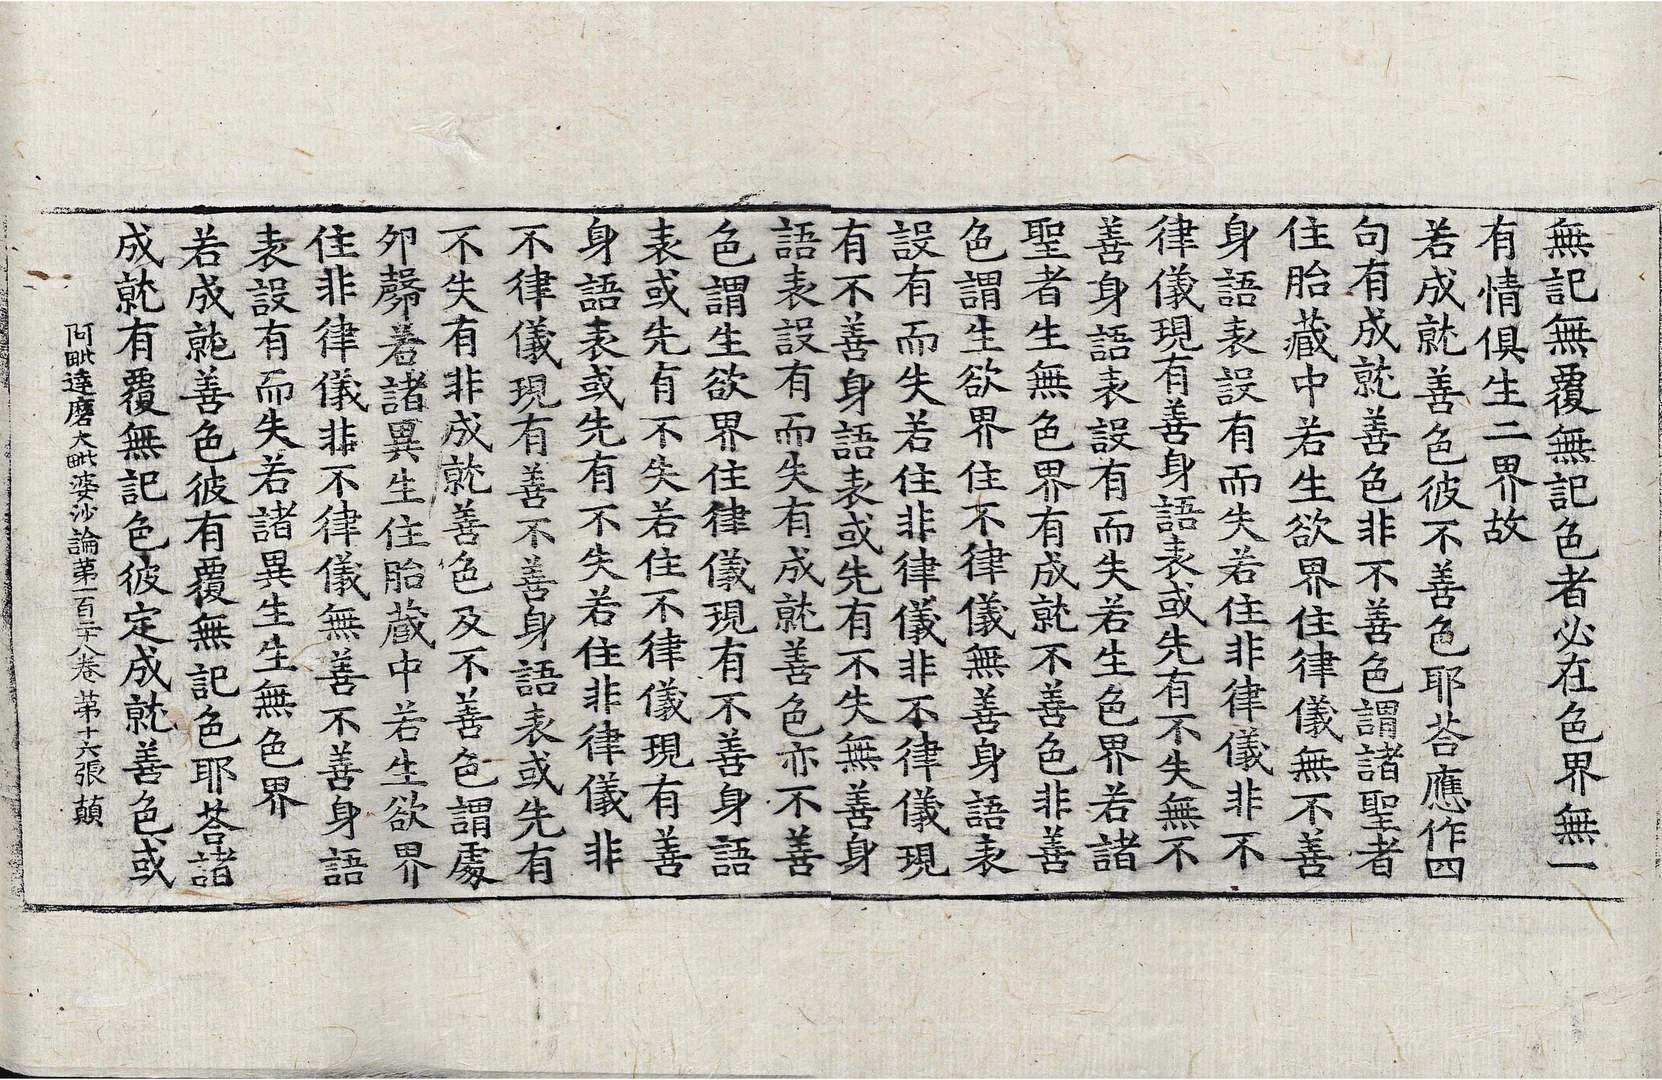 無記無覆無記色者必在色界無一
有情俱生二界故
若成就善色彼不善色耶荅應作四
句有成就善色非不善色謂諸聖者
住胎藏中若生欲界住律儀無不善
身語表設有而失若住非律儀非不
律儀現有善身語表或先有不失無不
善身語表設有而失若生色界若諸
聖者生無色界有成就不善色非善
色謂生欲界住不律儀無善身語表
設有而失若住非律儀非不律儀現
有不善身語表或先有不失無善身
語表設有而失有成就善色亦不善
色謂生欲界住律儀現有不善身語
表或先有不失若住不律儀現有善
身語表或先有不失若住非律儀非
不律儀現有善不善身語表或先有
不失有非成就善色及不善色謂處
卵㲉若諸異生住胎藏中若生欲界
住非律儀非不律儀無善不善身語
表設有而失若諸異生生無色界
若成就善色彼有覆無記色耶荅諸
成就有覆無記色彼定成就善色或
阿毗達磨大毗婆沙論第一百二十八卷 第十六張 顛